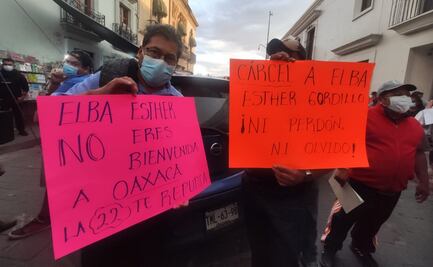 ELBA ESTHER
NO ERES
BIENVENIDA
A OAXACA
LA (22) TE REPUDIA
CARCEL A ELBA
ESTHER GORDILLO
¡NI PERDÓN,
NI OLVIDO!